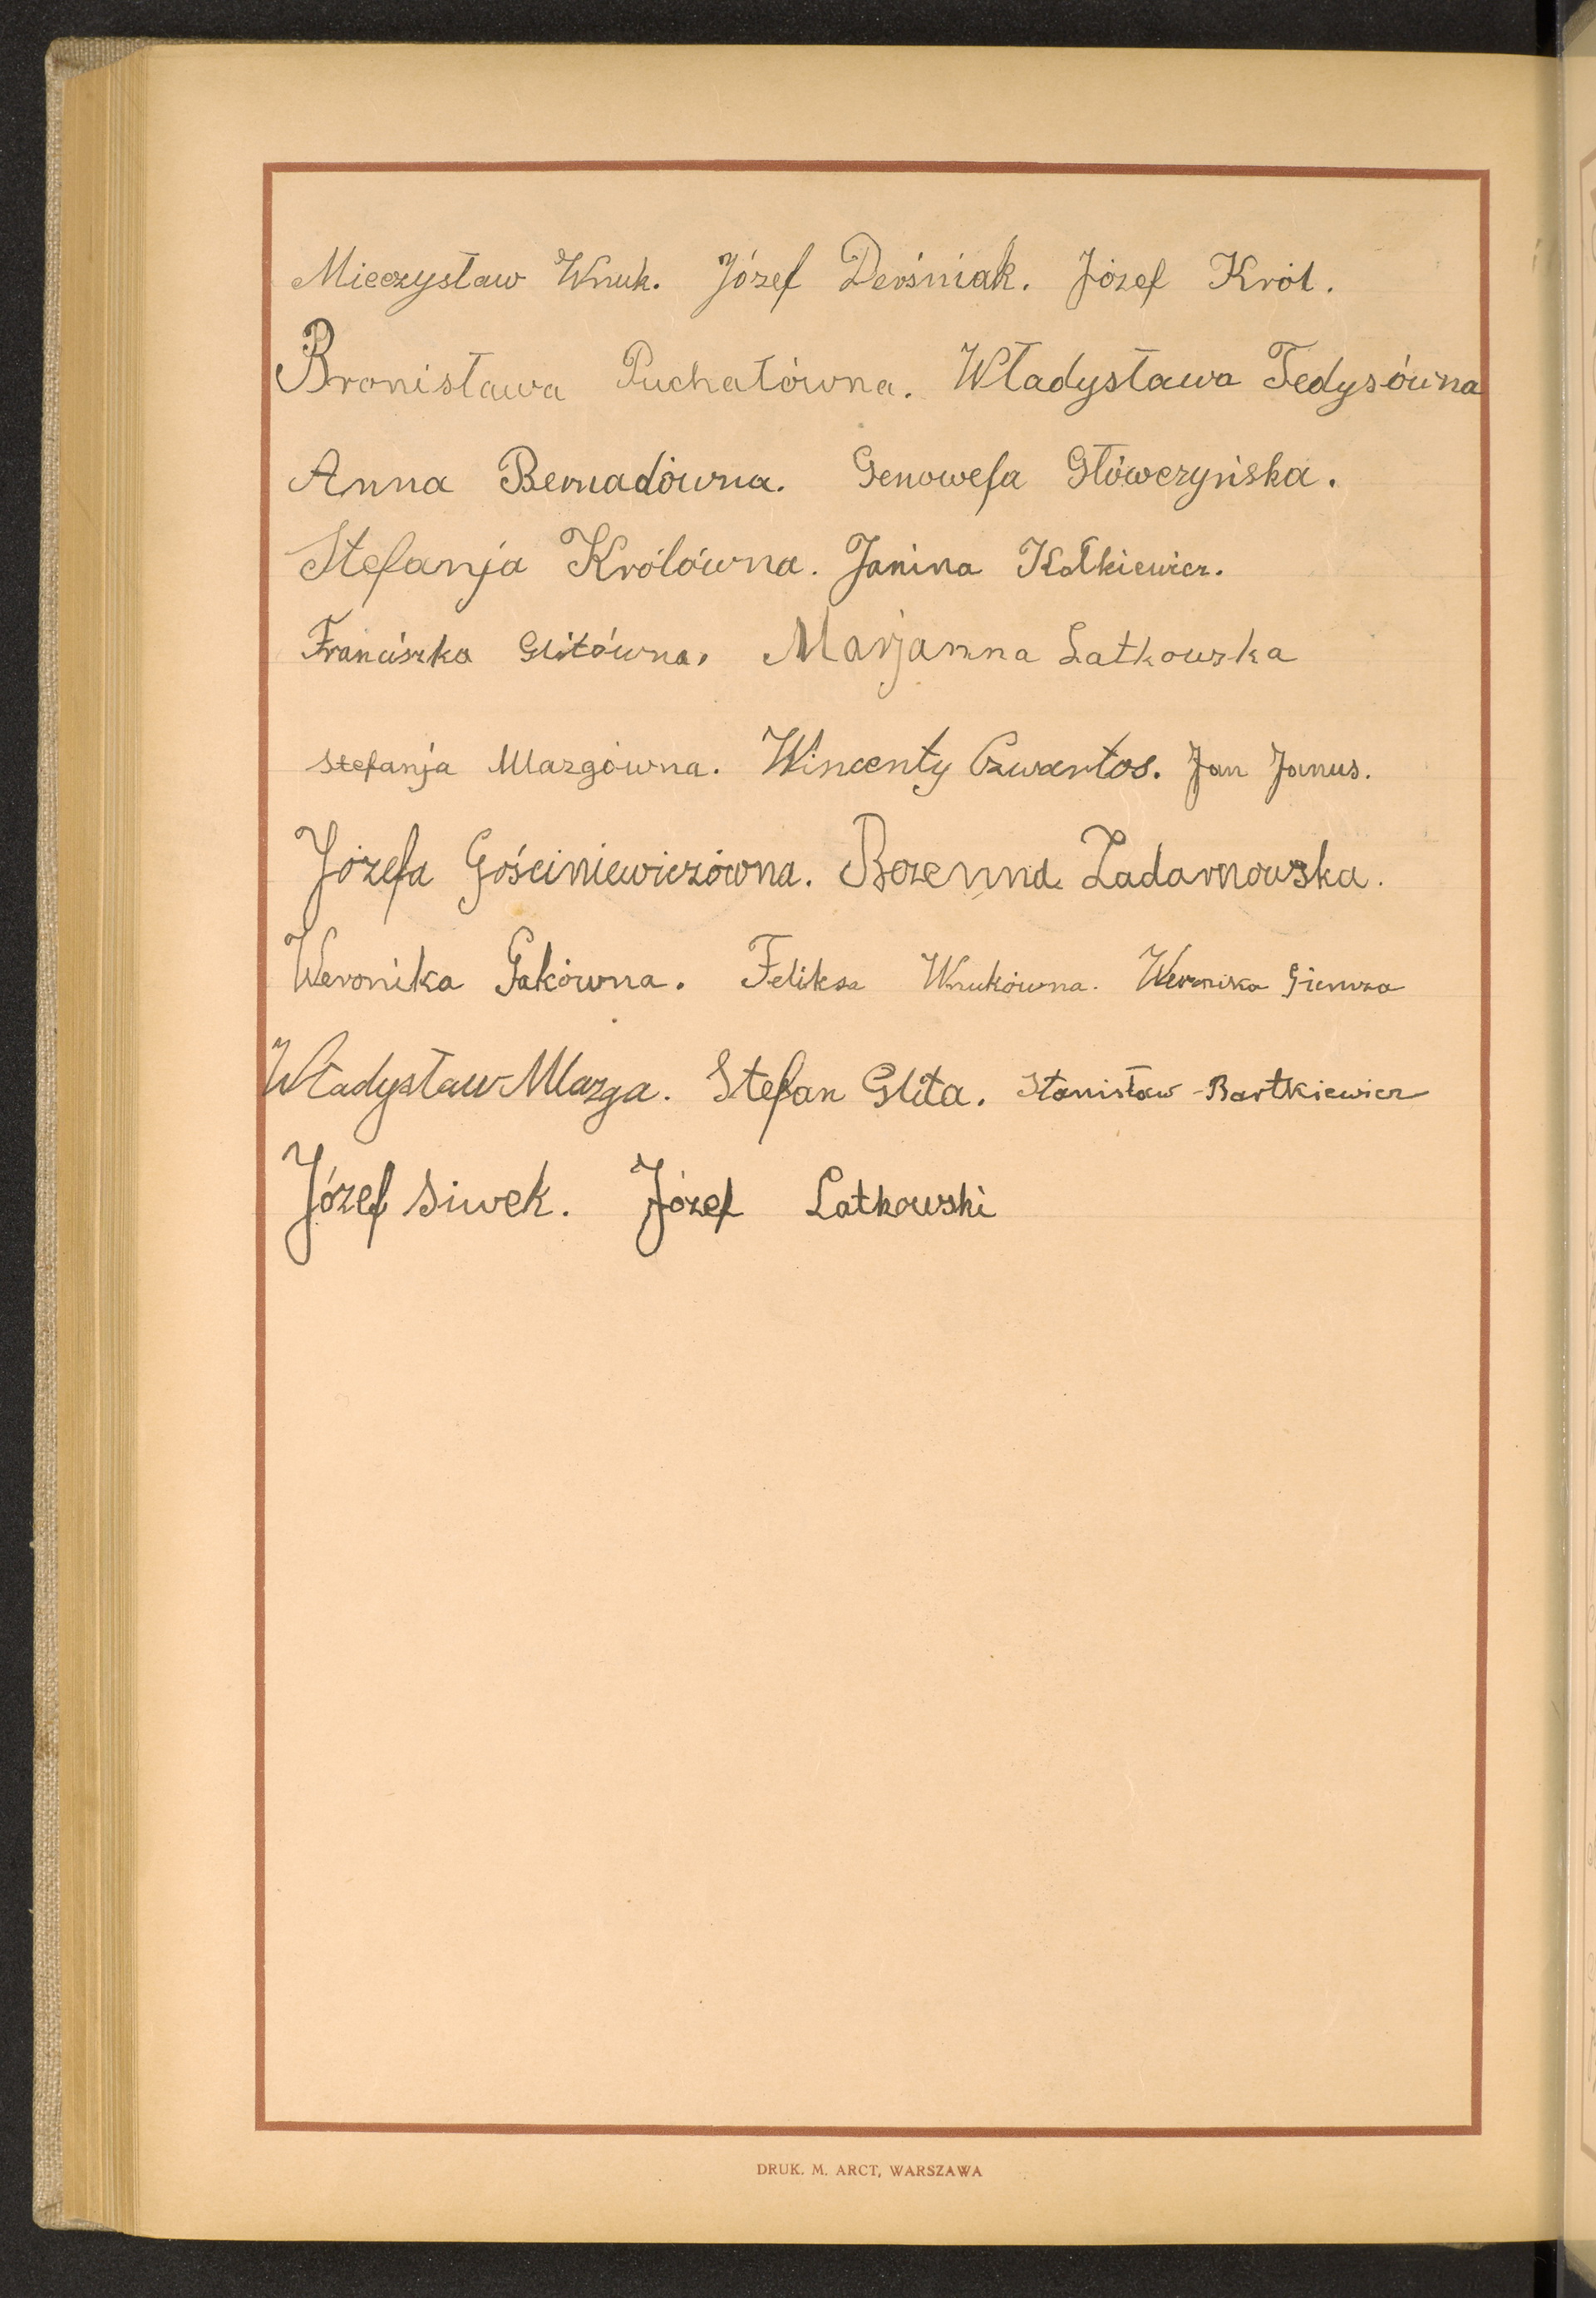 Mieczysław Wnuk. Józef Derśniak. Józef Król.
Bronisława Puchałówna. Władysława Fedysówna
Anna Bernadówna. Genowefa Główczyńska.
Stefanja Królówna. Janina Kałkiewicz.
Franciszka Glitówna. Marjanna Latkowska
Stefanja Mazgówna. Wincenty Czwartos. Jan Janus.
Józefa Gościniewiczówna. Bozenna Ladarnowska.
Weronika Gakówna. Feliksa Wnukówna. Weronika Giemza
Władysław Mazga. Stefan Glita. Stanisław Bartkiewicz
Józef Siwek. Józef Latkowski
DRUK. M. ARCT, WARSZAWA